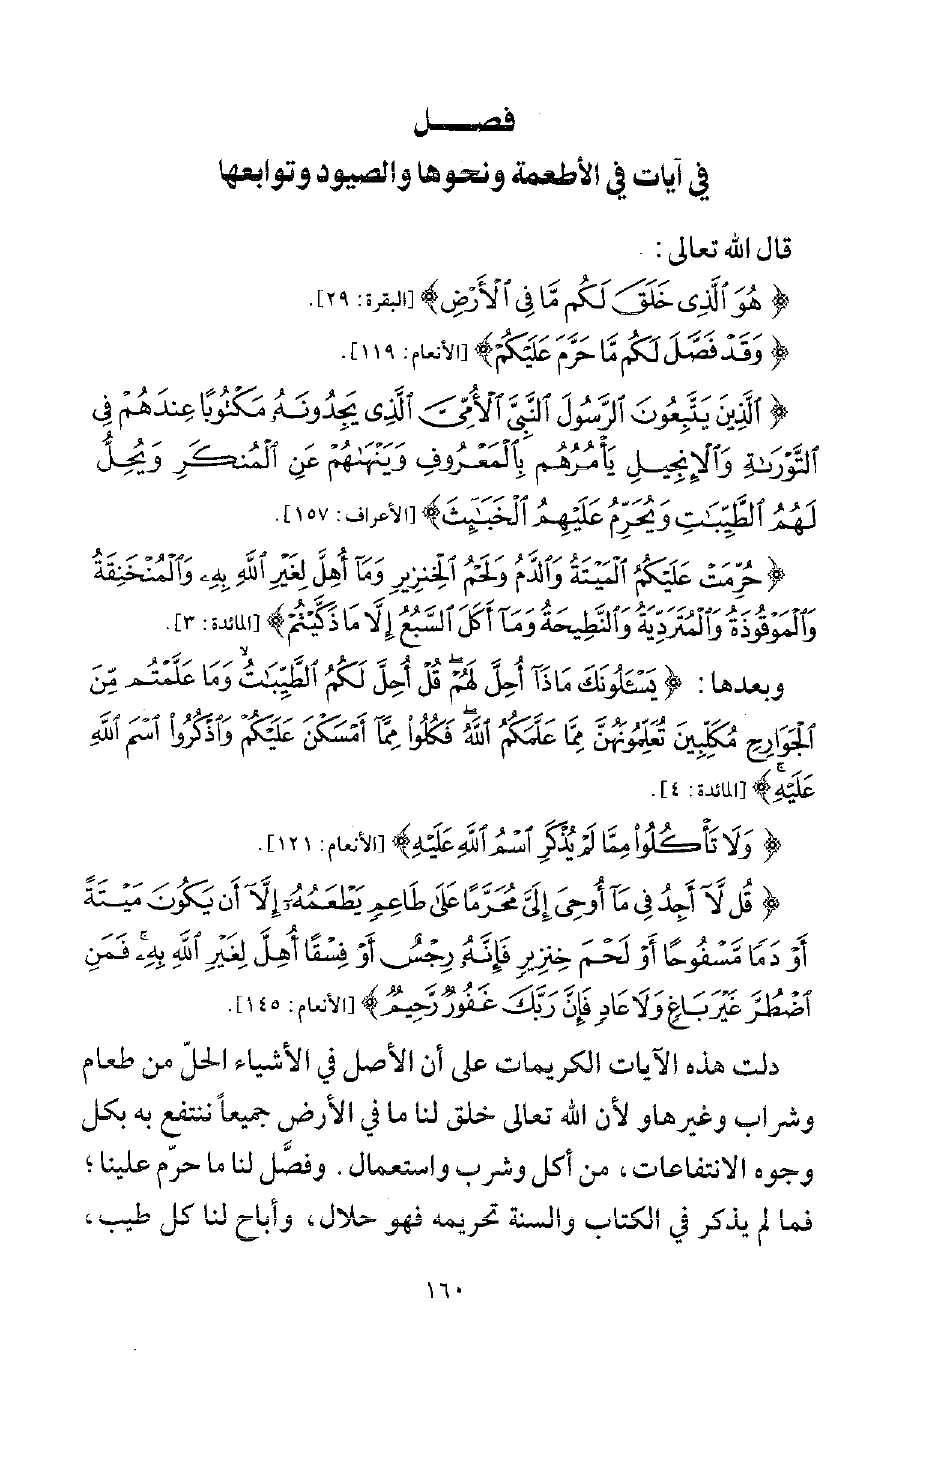 فصـــل
في آيات في الأطعمة ونحوها والصيود وتوابعها
قال الله تعالى :
﴿ هُوَ ٱلَّذِى خَلَقَ لَكُم مَّا فِى ٱلْأَرْضِ﴾ [البقرة: ٢٩].
﴿ وَقَدْ فَصَّلَ لَكُم مَّا حَرَّمَ عَلَيْكُمْ﴾ [الأنعام: ١١٩].
﴿ ٱلَّذِينَ يَتَّبِعُونَ ٱلرَّسُولَ ٱلنَّبِىَّ ٱلْأُمِّىَّ ٱلَّذِى يَجِدُونَهُۥ مَكْتُوبًا عِندَهُمْ فِى
ٱلتَّوْرَىٰةِ وَٱلْإِنجِيلِ يَأْمُرُهُم بِٱلْمَعْرُوفِ وَيَنْهَىٰهُمْ عَنِ ٱلْمُنكَرِ وَيُحِلُّ
لَهُمُ ٱلطَّيِّبَٰتِ وَيُحَرِّمُ عَلَيْهِمُ ٱلْخَبَٰٓئِثَ﴾ [الأعراف: ١٥٧].
﴿ حُرِّمَتْ عَلَيْكُمُ ٱلْمَيْتَةُ وَٱلدَّمُ وَلَحْمُ ٱلْخِنزِيرِ وَمَآ أُهِلَّ لِغَيْرِ ٱللَّهِ بِهِۦ وَٱلْمُنْخَنِقَةُ
وَٱلْمَوْقُوذَةُ وَٱلْمُتَرَدِّيَةُ وَٱلنَّطِيحَةُ وَمَآ أَكَلَ ٱلسَّبُعُ إِلَّا مَا ذَكَّيْتُمْ﴾ [المائدة: ٣].
وبعدها : ﴿ يَسْـَٔلُونَكَ مَاذَآ أُحِلَّ لَهُمْ ۖ قُلْ أُحِلَّ لَكُمُ ٱلطَّيِّبَٰتُ ۙ وَمَا عَلَّمْتُم مِّنَ
ٱلْجَوَارِحِ مُكَلِّبِينَ تُعَلِّمُونَهُنَّ مِمَّا عَلَّمَكُمُ ٱللَّهُ ۖ فَكُلُوا۟ مِمَّآ أَمْسَكْنَ عَلَيْكُمْ وَٱذْكُرُوا۟ ٱسْمَ ٱللَّهِ
عَلَيْهِ ۚ﴾ [المائدة: ٤].
﴿ وَلَا تَأْكُلُوا۟ مِمَّا لَمْ يُذْكَرِ ٱسْمُ ٱللَّهِ عَلَيْهِ﴾ [الأنعام: ١٢١].
﴿ قُل لَّآ أَجِدُ فِى مَآ أُوحِىَ إِلَىَّ مُحَرَّمًا عَلَىٰ طَاعِمٍ يَطْعَمُهُۥٓ إِلَّآ أَن يَكُونَ مَيْتَةً
أَوْ دَمًا مَّسْفُوحًا أَوْ لَحْمَ خِنزِيرٍ فَإِنَّهُۥ رِجْسٌ أَوْ فِسْقًا أُهِلَّ لِغَيْرِ ٱللَّهِ بِهِۦ ۚ فَمَنِ
ٱضْطُرَّ غَيْرَ بَاغٍ وَلَا عَادٍ فَإِنَّ رَبَّكَ غَفُورٌ رَّحِيمٌ﴾ [الأنعام: ١٤٥].
دلت هذه الآيات الكريمات على أن الأصل في الأشياء الحلّ من طعام
وشراب وغيرهاو لأن الله تعالى خلق لنا ما في الأرض جميعاً ننتفع به بكل
وجوه الانتفاعات، من أكل وشرب واستعمال. وفصَّل لنا ما حرّم علينا؛
فما لم يذكر في الكتاب والسنة تحريمه فهو حلال، وأباح لنا كل طيب،
١٦٠